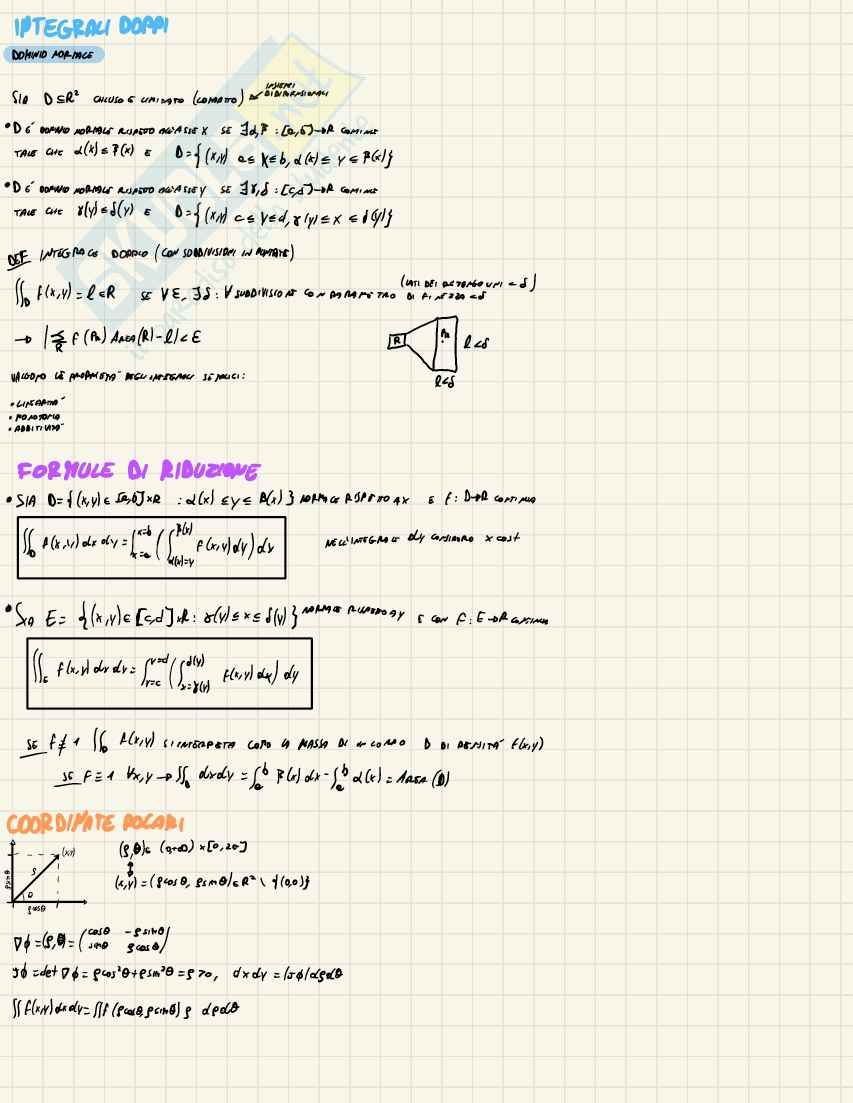 INTEGRALI DOPPI
DOMINIO NORMALE
SIA D ⊆ R² CHIUSO E LIMITATO (COMPATTO) ↙ INSIEMI BIDIMENSIONALI
• D E' DOMINIO NORMALE RISPETTO ALL'ASSE X SE ∃ α, β : [a,b] → R CONTINUE
TALE CHE α(x) ≤ β(x) E D = {(x,y) a ≤ x ≤ b, α(x) ≤ y ≤ β(x)}
• D E' DOMINIO NORMALE RISPETTO ALL'ASSE Y SE ∃ γ, δ : [c,d] → R CONTINUE
TALE CHE γ(y) ≤ δ(y) E D = {(x,y) c ≤ y ≤ d, γ(y) ≤ x ≤ δ(y)}
DEF INTEGRALE DOPPIO (CON SUDDIVISIONI IN
(LATI DEI RETTANGOLINI < δ)
∬_D f(x,y) = l ∈ R SE ∀ε, ∃δ : ∀ SUDDIVISIONE CON PARAMETRO DI FINEZZA < δ
→ |Σ_R f(P_R) AREA(R) - l| < ε
R P_R l < δ
l < δ
VALGONO LE PROPRIETA' DEGLI INTEGRALI SEMPLICI:
• LINEARITA'
• MONOTONIA
• ADDITIVITA'
FORMULE DI RIDUZIONE
• SIA D = {(x,y) ∈ [a,b] x R : α(x) ≤ y ≤ β(x)} NORMALE RISPETTO A X E f : D → R CONTINUA
∬_D f(x,y) dx dy = ∫_{x=a}^{x=b} (∫_{α(x)=y}^{β(x)} f(x,y) dy) dx
NELL'INTEGRALE dy CONSIDERO x cost
• SIA E = {(x,y) ∈ [c,d] x R : γ(y) ≤ x ≤ δ(y)} NORMALE RISPETTO A Y E CON f : E → R CONTINUA
∬_E f(x,y) dx dy = ∫_{y=c}^{y=d} (∫_{x=γ(y)}^{δ(y)} f(x,y) dx) dy
SE f ≢ 1 ∬_D f(x,y) SI INTERPRETA COME LA MASSA DI UN CORPO D DI DENSITA' f(x,y)
SE f ≡ 1 ∀x,y → ∬_D dx dy = ∫_a^b β(x) dx - ∫_a^b α(x) = AREA(D)
COORDINATE POLARI
(x,y)
ρ
θ
ρ sinθ
ρ cosθ
(ρ,θ) ∈ (0,+∞) x [0,2π]
↕
(x,y) = (ρcosθ, ρsinθ) ∈ R² \ {(0,0)}
∇ϕ = (ρ,θ) = (cosθ -ρsinθ
sinθ ρcosθ)
Jϕ = det ∇ϕ = ρcos²θ + ρsin²θ = ρ > 0, dx dy = |Jϕ| dρdθ
∬ f(x,y) dx dy = ∬ f(ρcosθ, ρsinθ) ρ dρdθ
SKUOLA.net